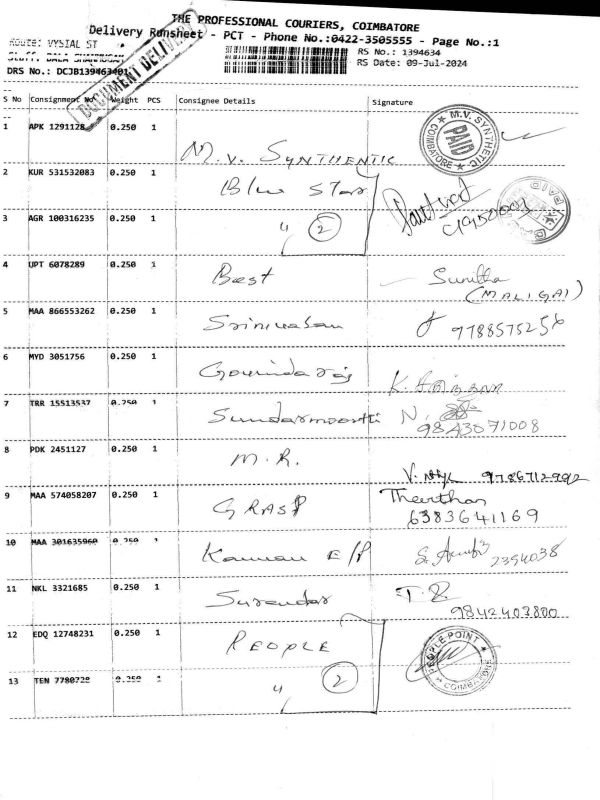 THE PROFESSIONAL COURIERS, COIMBATORE
Delivery Runsheet - PCT - Phone No.:0422-3505555 - Page No.:1
Route: VYSIAL ST
RS No.: 1394634
RS Date: 09-Jul-2024
DRS No.: DCJB139463401
DOCUMENT DELIVERY
S No Consignment No Weight PCS Consignee Details Signature
1 APK 1291128 0.250 1 M.V. SYNTHENTIC
M.V. SYNTHETIC PAID COIMBATORE
2 KUR 531532083 0.250 1 Blue Star
3 AGR 100316235 0.250 1 " 2
PAID
4 UPT 6078289 0.250 1 Best Sunitha
(MALIGAI)
5 MAA 866553262 0.250 1 Srinivasan
6 MYD 3051756 0.250 1 Govindaraj
7 TRR 15513537 0.250 1 Sundarmoorthi N.
9843071008
8 PDK 2451127 0.250 1 M.R.
9 MAA 574058207 0.250 1 GRASP Theerthan
6383641169
10 MAA 301635960 0.250 1 Kannan E/P 2394038
11 NKL 3321685 0.250 1 Surendar T.R
9842403800
12 EDQ 12748231 0.250 1 PEOPLE
PEOPLE POINT COIMBATORE
13 TEN 7780728 0.250 1 " 2